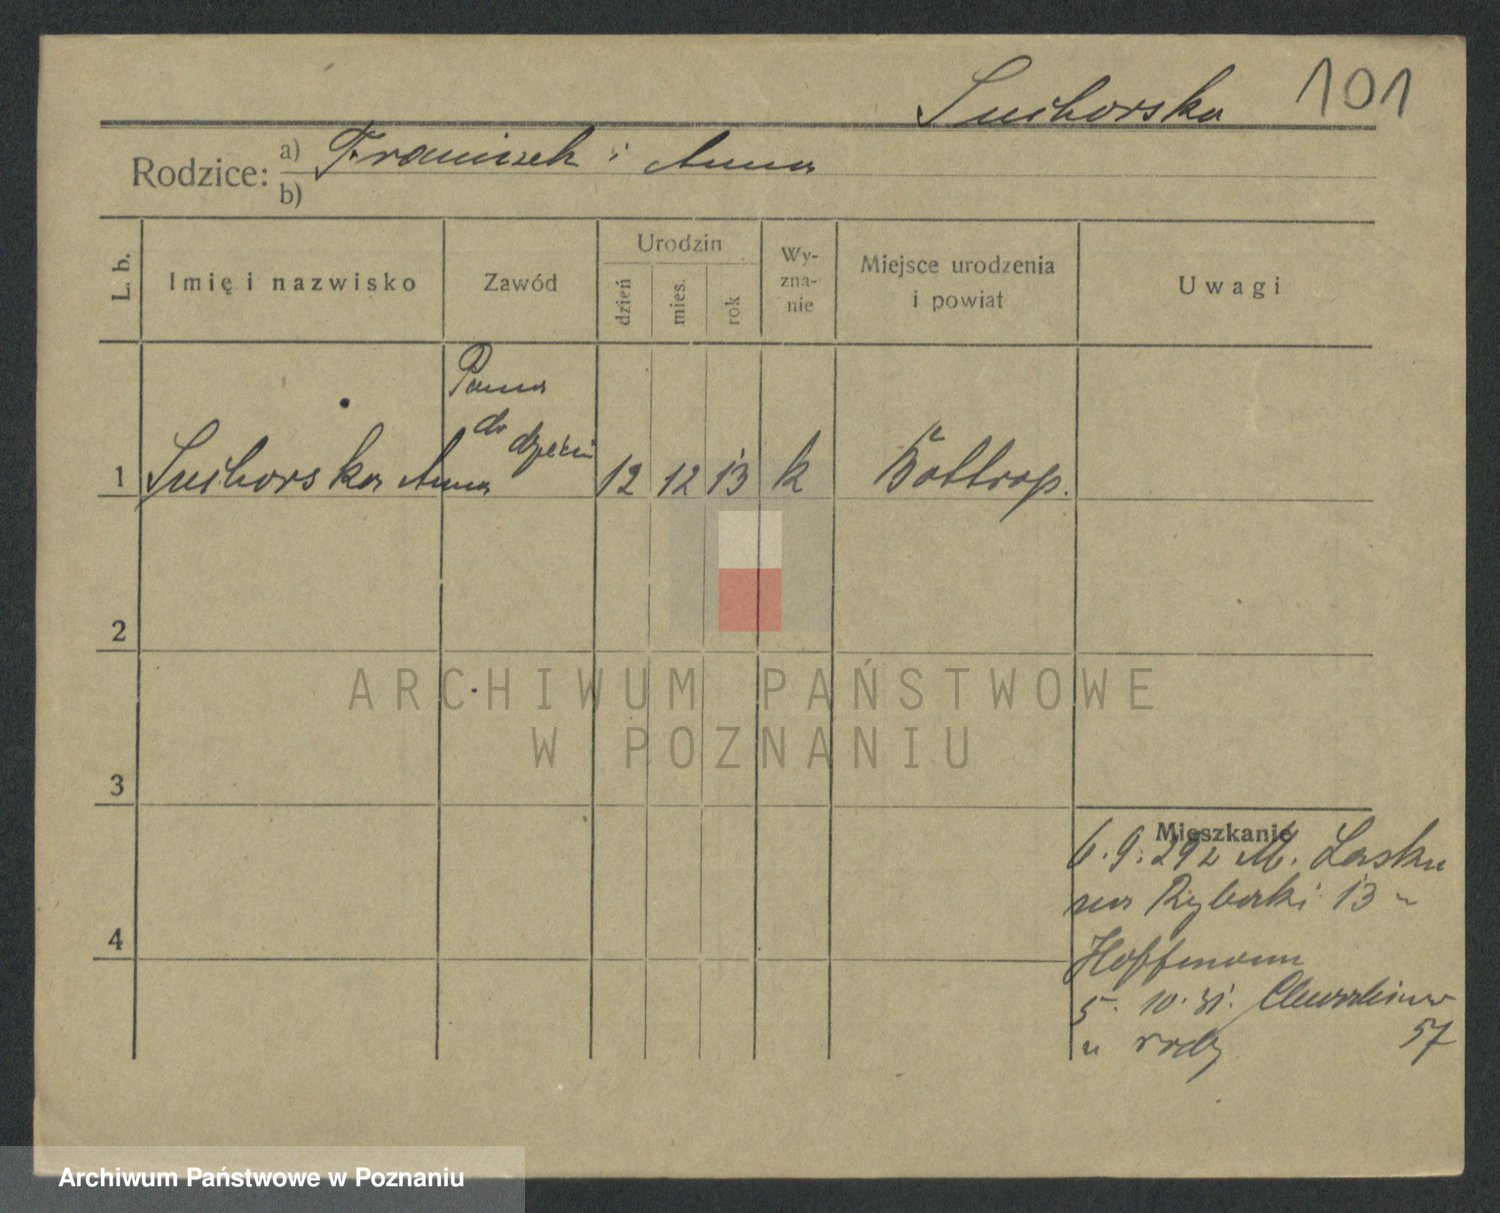 Suchorska 101
Rodzice: a) Franciszek i Anna
b)
L. b.
Imię i nazwisko
Zawód
Urodzin
dzień
mies.
rok
Wy-
zna-
nie
Miejsce urodzenia
i powiat
Uwagi
Panna
do dzieci
1 Suchorska Anna 12 12 13 k Bottrop.
2
ARCHIWUM PAŃSTWOWE
W POZNANIU
3
Mieszkanie
6. 9. 29 z M. Lasku
na Rybaki 13 u
4
Hoffmann
5. 10. 31.
57
u rodz
Archiwum Państwowe w Poznaniu